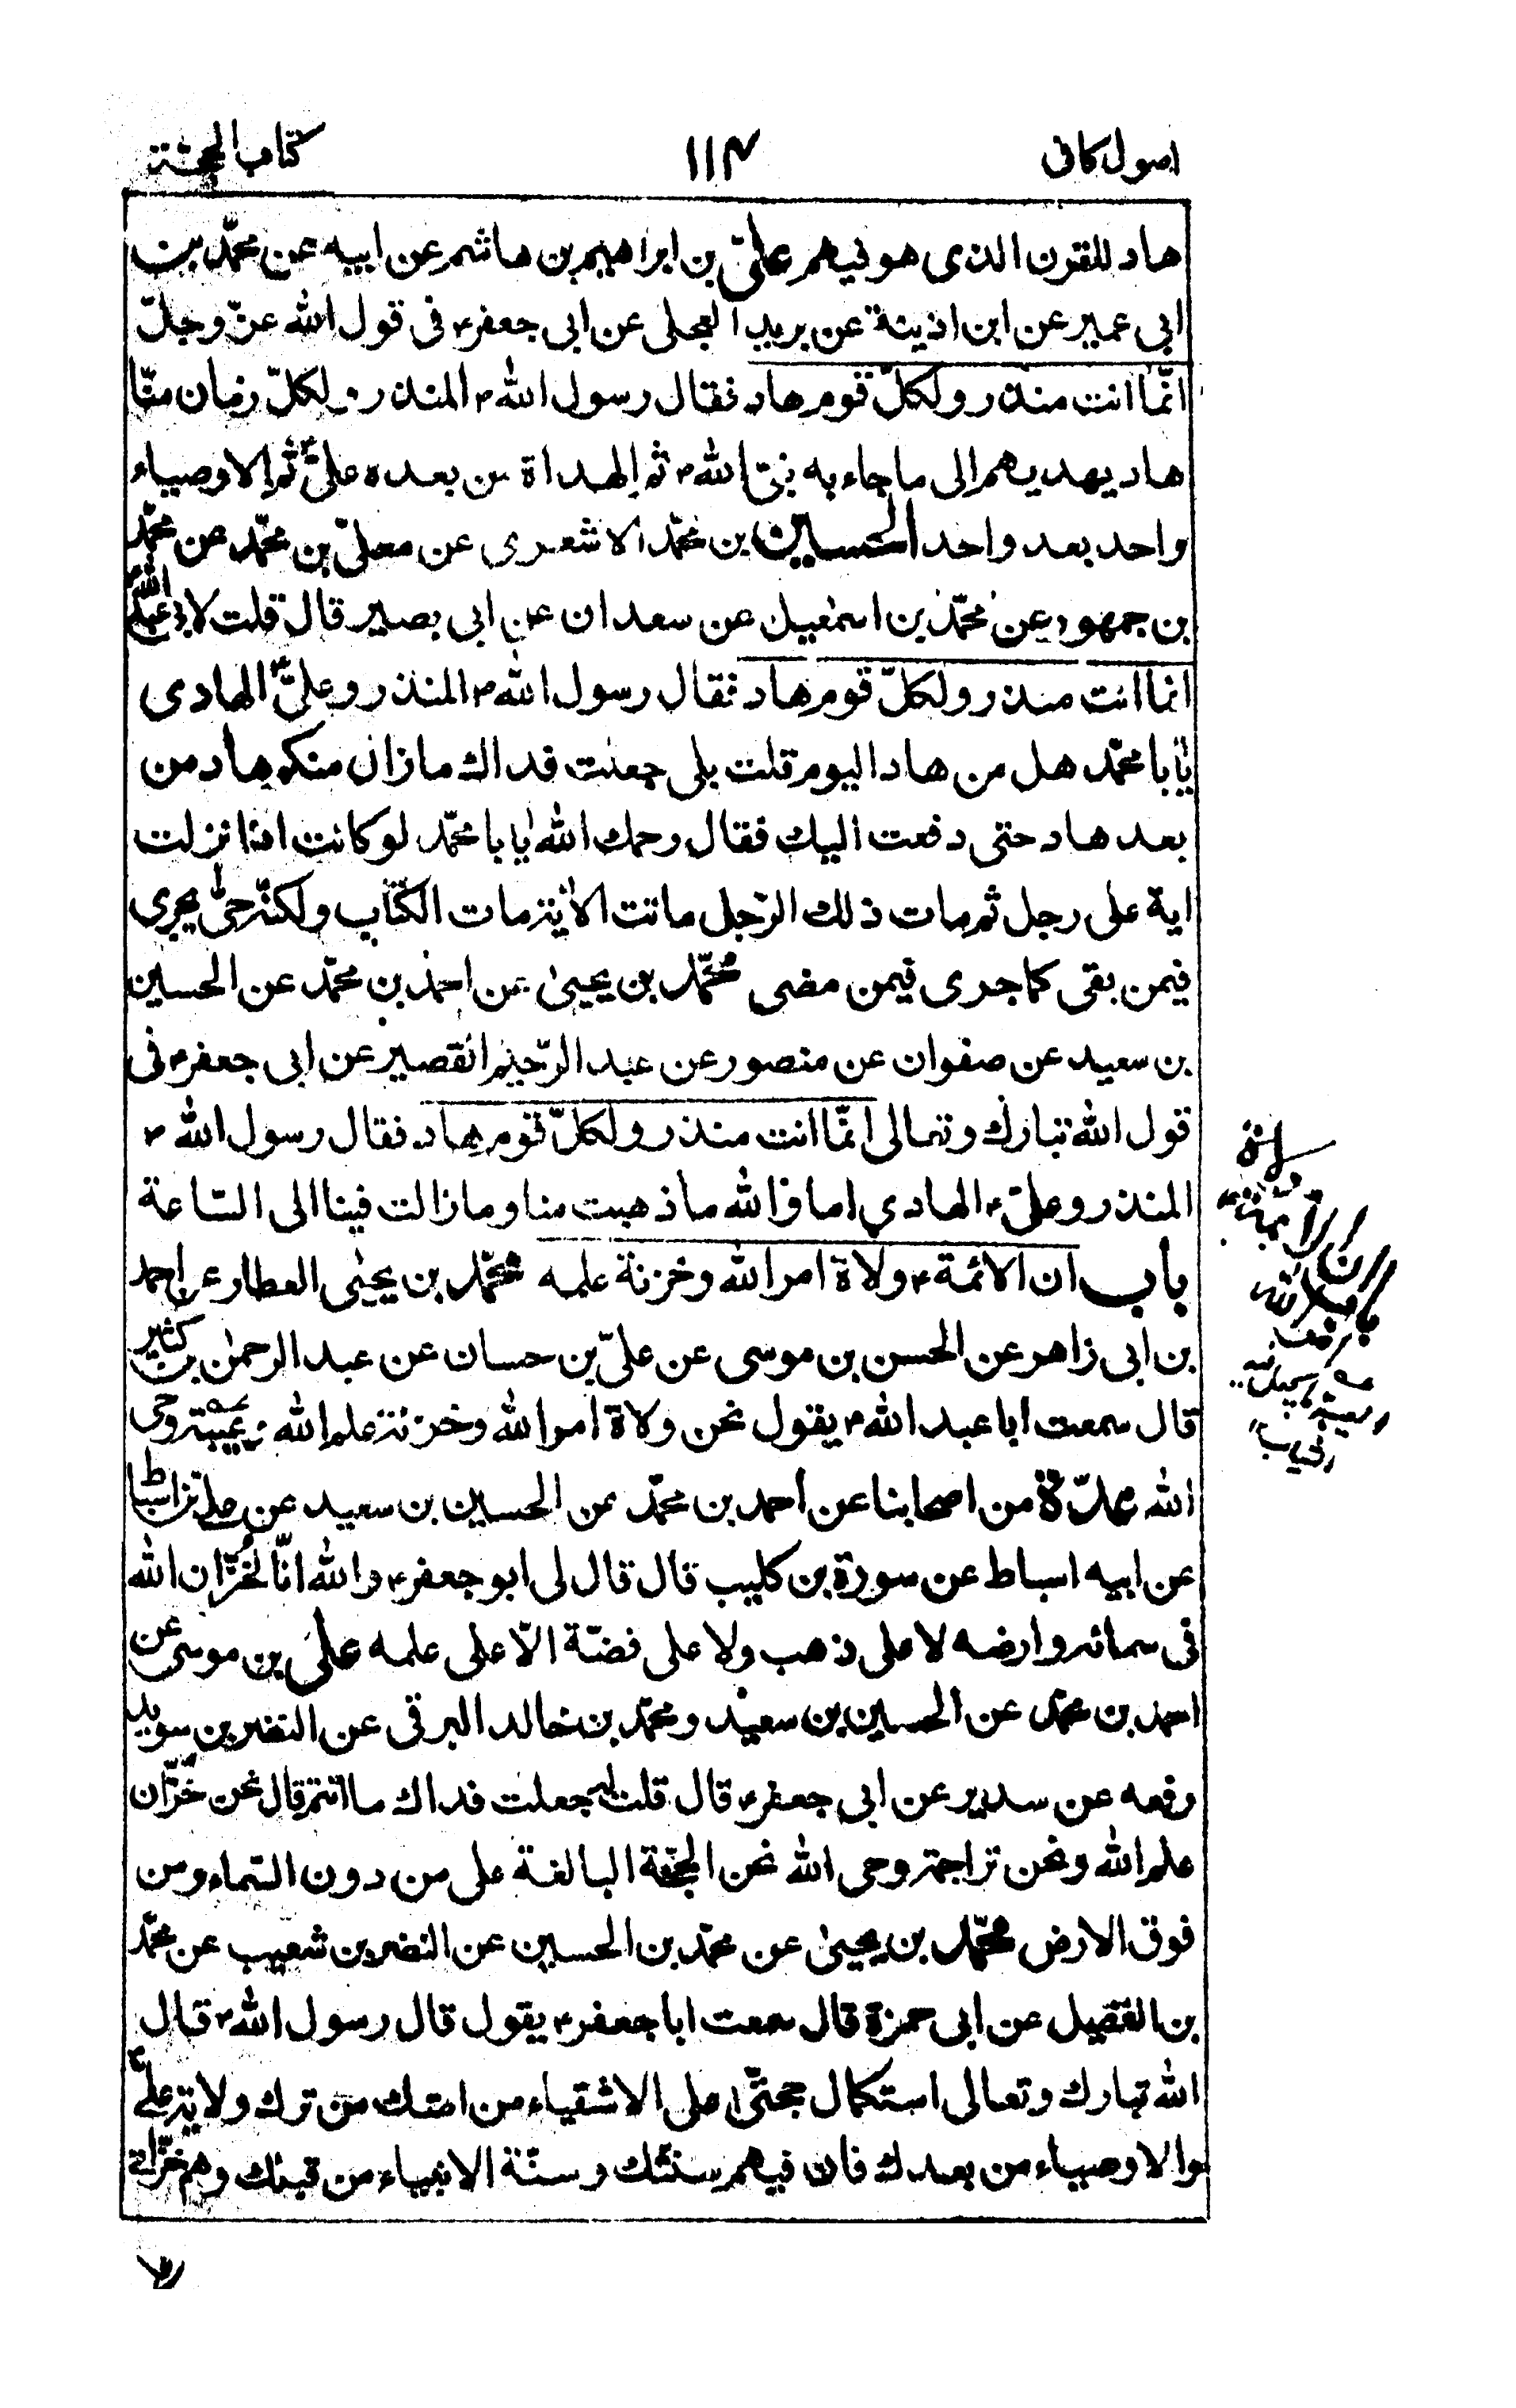 اصول كافى ١١٤ كتاب الحجة
هاد للقرن الذى هو فيهم على بن ابراهيم بن هاشم عن ابيه عن محمّد بن
ابى عمير عن ابن اذينة عن بريد العجلى عن ابى جعفرء فى قول الله عزّ وجلّ
انّما انت منذر ولكلّ قوم هاد فقال رسول الله ص المنذر ولكلّ زمان منّا
هاد يهديهم الى ما جاء به نبىّ الله ص ثم الهداة من بعده علىّ ثم الاوصياء
واحد بعد واحد الحسين بن محمّد الاشعرى عن معلىّ بن محمّد عن محمّد
بن جمهور عن محمّد بن اسمعيل عن سعدان عن ابى بصير قال قلت لابى عبد الله
انما انت منذر ولكلّ قوم هاد فقال رسول الله ص المنذر وعلىّ الهادى
يا با محمّد هل من هاد اليوم قلت بلى جعلت فداك ما زال منكم هاد من
بعد هاد حتى دفعت اليك فقال رحمك الله يا با محمّد لو كانت اذا نزلت
اية على رجل ثم مات ذلك الرّجل ماتت الاية مات الكتاب ولكنّه حىّ يجرى
فيمن بقى كما جرى فيمن مضى محمّد بن يحيىٰ عن احمد بن محمّد عن الحسين
بن سعيد عن صفوان عن منصور عن عبد الرّحيم القصير عن ابى جعفرء فى
قول الله تبارك وتعالى انّما انت منذر ولكلّ قوم هاد فقال رسول الله ص
المنذر وعلىّء الهادي اما والله ما ذهبت منا وما زالت فينا الى السّاعة
باب ان الائمةء ولاة امر الله وخزنة علمه محمّد بن يحيٰى العطار عن احمد
بن ابى زاهر عن الحسن بن موسى عن علىّ بن حسان عن عبد الرحمٰن بن كثير
قال سمعت ابا عبد اللهء يقول نحن ولاة امر الله وخزنة علم الله وعيبة وحى
الله عدّة من اصحابنا عن احمد بن محمّد عن الحسين بن سعيد عن على بن اسباط
عن ابيه اسباط عن سورة بن كليب قال قال لى ابو جعفرء والله انّا لخُزّان الله
فى سمائه وارضه لا على ذهب ولا على فضّة الّا على علمه على بن موسى عن
احمد بن محمّد عن الحسين بن سعيد ومحمّد بن خالد البرقى عن النضر بن سويد
رفعه عن سدير عن ابى جعفرء قال قلت له جعلت فداك ما انتم قال نحن خُزّان
علم الله ونحن تراجمة وحى الله نحن الحجّة البالغة على من دون السّماء ومن
فوق الارض محمّد بن يحيىٰ عن محمّد بن الحسين عن النضر بن شعيب عن محمّد
بن الفضيل عن ابى حمزة قال سمعت ابا جعفرء يقول قال رسول الله ص قال
الله تبارك وتعالى استكمال حجتى على الاشقياء من امتك من ترك ولاية علىّ
والاوصياء من بعدك فان فيهم سنتك وسنّة الانبياء من قبلك وهم خزّانى